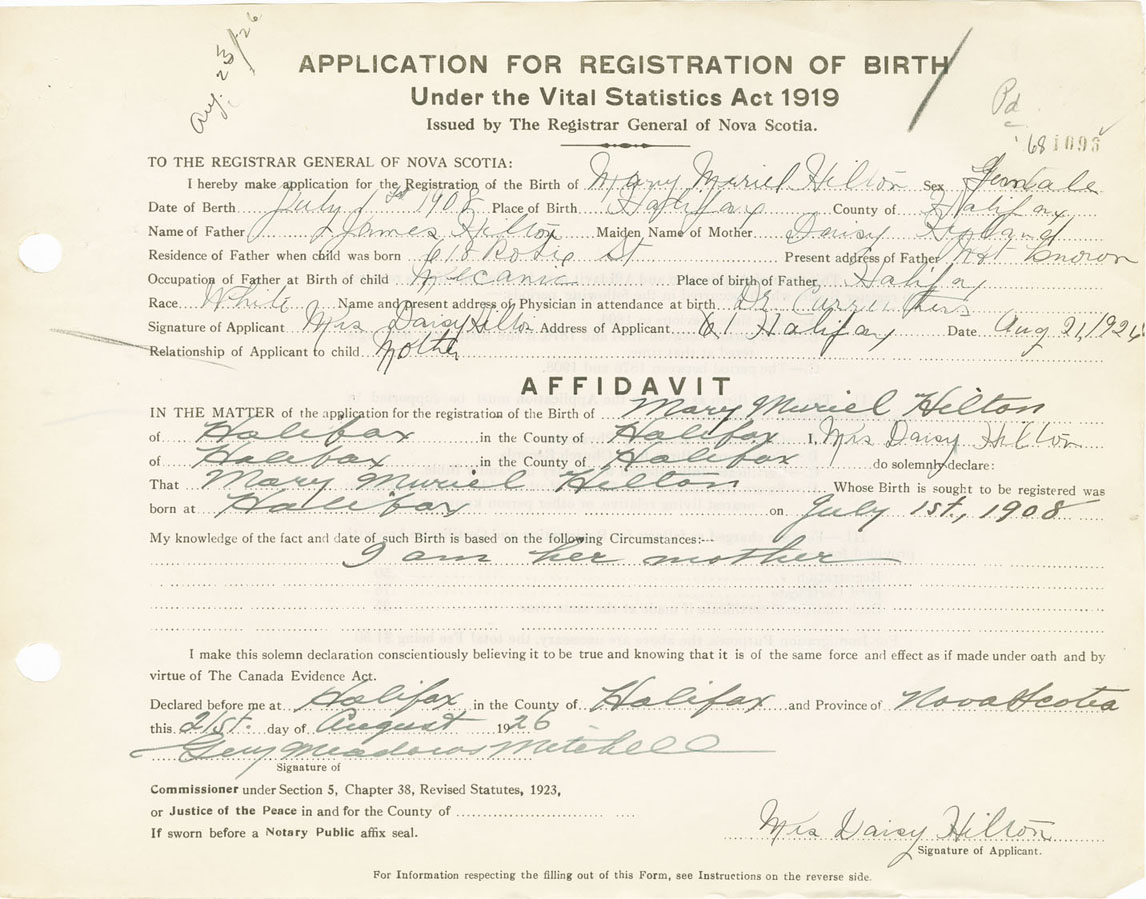 Aug. 23/26
APPLICATION FOR REGISTRATION OF BIRTH
Under the Vital Statistics Act 1919
Issued by The Registrar General of Nova Scotia.
Pd
68 1093
TO THE REGISTRAR GENERAL OF NOVA SCOTIA:
I hereby make application for the Registration of the Birth of Mary Muriel Hilton Sex Female
Date of Berth July 1st 1908 Place of Birth Halifax County of Halifax
Name of Father James Hilton Maiden Name of Mother Daisy
Residence of Father when child was born 618 Robie St Present address of Father Not Known
Occupation of Father at Birth of child Mecanic Place of birth of Father Halifax
Race White Name and present address of Physician in attendance at birth Dr Curruthers
Signature of Applicant Mrs Daisy Hilton Address of Applicant 61 Halifax Date Aug 21, 1926
Relationship of Applicant to child Mother
AFFIDAVIT
IN THE MATTER of the application for the registration of the Birth of Mary Muriel Hilton
of Halifax in the County of Halifax I, Mrs Daisy Hilton
of Halifax in the County of Halifax do solemnly declare:
That Mary Muriel Hilton Whose Birth is sought to be registered was
born at Halifax on July 1st., 1908
My knowledge of the fact and date of such Birth is based on the following Circumstances:---
I am her mother
I make this solemn declaration conscientiously believing it to be true and knowing that it is of the same force and effect as if made under oath and by
virtue of The Canada Evidence Act.
Declared before me at Halifax in the County of Halifax and Province of Nova Scotia
this 21st. day of August 1926
Meadows Mitchell
Signature of
Commissioner under Section 5, Chapter 38, Revised Statutes, 1923,
or Justice of the Peace in and for the County of
If sworn before a Notary Public affix seal.
Mrs Daisy Hilton
Signature of Applicant.
For Information respecting the filling out of this Form, see Instructions on the reverse side.